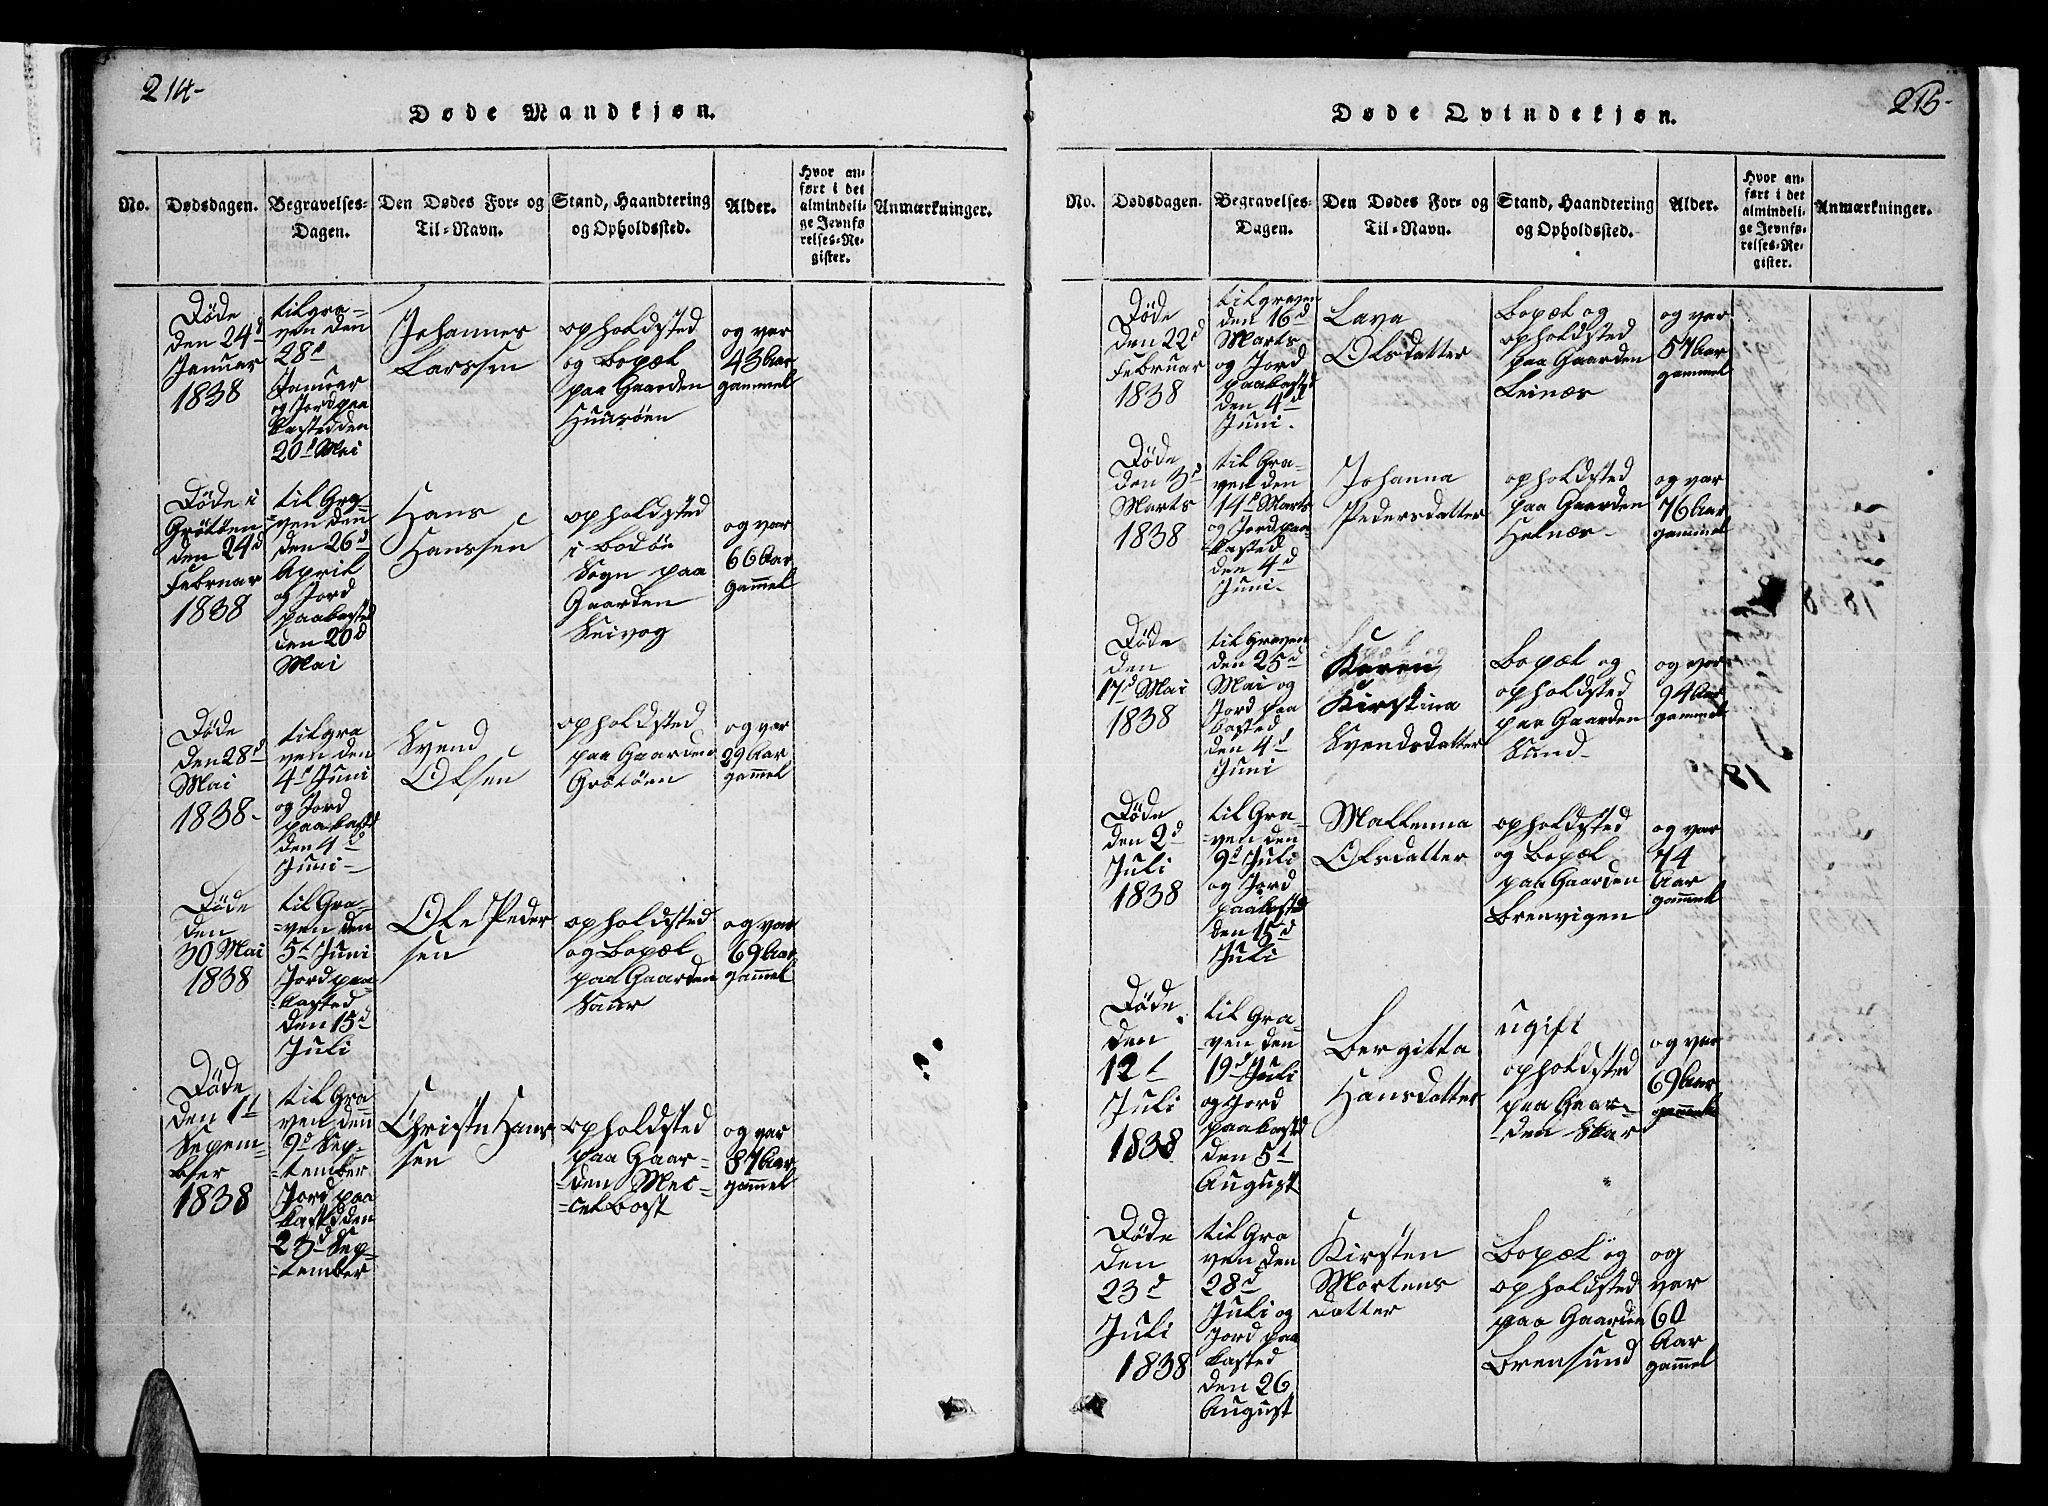 214-
Døde Mandkjøn.
No.
Dødsdagen.
Begravelses-
Dagen.
Den Dødes For- og
Til-Navn.
Stand, Haandtering
og Opholdssted.
Alder.
Hvor an-
ført i det
almindeli-
ge Jevnfø-
relses-Re-
gister.
Anmærkninger.
Døde
den 24d
Januar
1838
til gra-
ven den
28d
Januar
og Jord paa
kasted den
20d Mai
Johannes
Larssen
opholdsted
og Bopæl
paa Gaarden
Husøen
og var
43 Aar
gammel
Døde i
Grøtøen
den 24d
Februar
1838
til Gra
ven den
den 26d
April
og Jord
paakasted
den 20d
Mai
Hans
Hanssen
opholdsted
i Bodøe
Sogn paa
Gaarden
Seivog
og var
66 Aar
gammel
Døde
den 28d
Mai
1838-
til gra
ven den
4d Juni
og Jord
paakasted
den 4d
Juni-
Svend
Olsen
opholdsted
paa Gaarden
Grøtøen
og var
29 Aar
gammel
Døde
den
30 Mai
1838
til Gra-
-ven den
5t Juni
Jord paa-
kasted
den 15d
Juli
Ole Peder
sen
opholdsted
og Bopæl
paa Gaarden
og var
69 Aar
gammel
Døde
den 1t
Sepem-
ber
1838
til Gra
ven den
9d Sep-
-tember
Jord paa
kasted den
23d Sep-
-tember
Christen Hans
sen
opholdsted
paa Gaar-
-den Mec-
-celbost
og var
87 Aar
gammel
215-
Døde Qvindekjøn.
No.
Dødsdagen.
Begravelses-
Dagen.
Den Dødes For- og
Til-Navn.
Stand, Haandtering
og Opholdssted.
Alder.
Hvor an-
ført i det
almindeli-
ge Jevnfø-
relses-Re-
gister.
Anmærkninger.
Døde
den 22d
Februar
1838
til graven
den 16d
Marts
og Jord
paakasted
den 4d
Juni.
Lava
Olsdatter
Bopæl og
opholdsted
paa Gaarden
Leinæs
og var
57 Aar
gammel
Døde
den 3d
Marts
1838
til Gra-
ven den
14d Marts
og Jord paa-
kasted
den 4d
Juni-
Johanna
Pedersdatter
opholdsted
paa Gaarden
Helnæs-
og var
76 Aar
gammel
Døde
den
17d Mai
1838
til Graven
den 25d
Mai og
Jord paa
kasted
den 4d
Juni
Karen
Kirstina
Svendsdatter
Bopæl og
opholdsted
paa Gaarden
Sund-
og var
94 Aar
gammel
Døde
den 2d
Juli
1838
til Gra-
-ven den
9d Juli
og Jord
paakasted
den 15d
Juli
Mallenna
Olsdatter
opholdsted
og Bopæl
paa Gaarden
Brenvigen
og var
74
Aar
gammel
Døde
den
12t
Juli
1838
til Gra-
-ven den
19d Juli
og Jord
paakasted
den 5t
August
Bergitta
Hansdatter
ugift
opholdsted
paa Gaar-
-den Skar
og var
69 Aar
gammel
Døde
den
23d
Juli
1838
til Gra
ven den
28d
Juli og
Jord paa
kasted
den 26
August
Kirsten
Mortens
datter
Bopæl og
opholdsted
paa Gaarden
Brensund
og
var
60
Aar
gammel